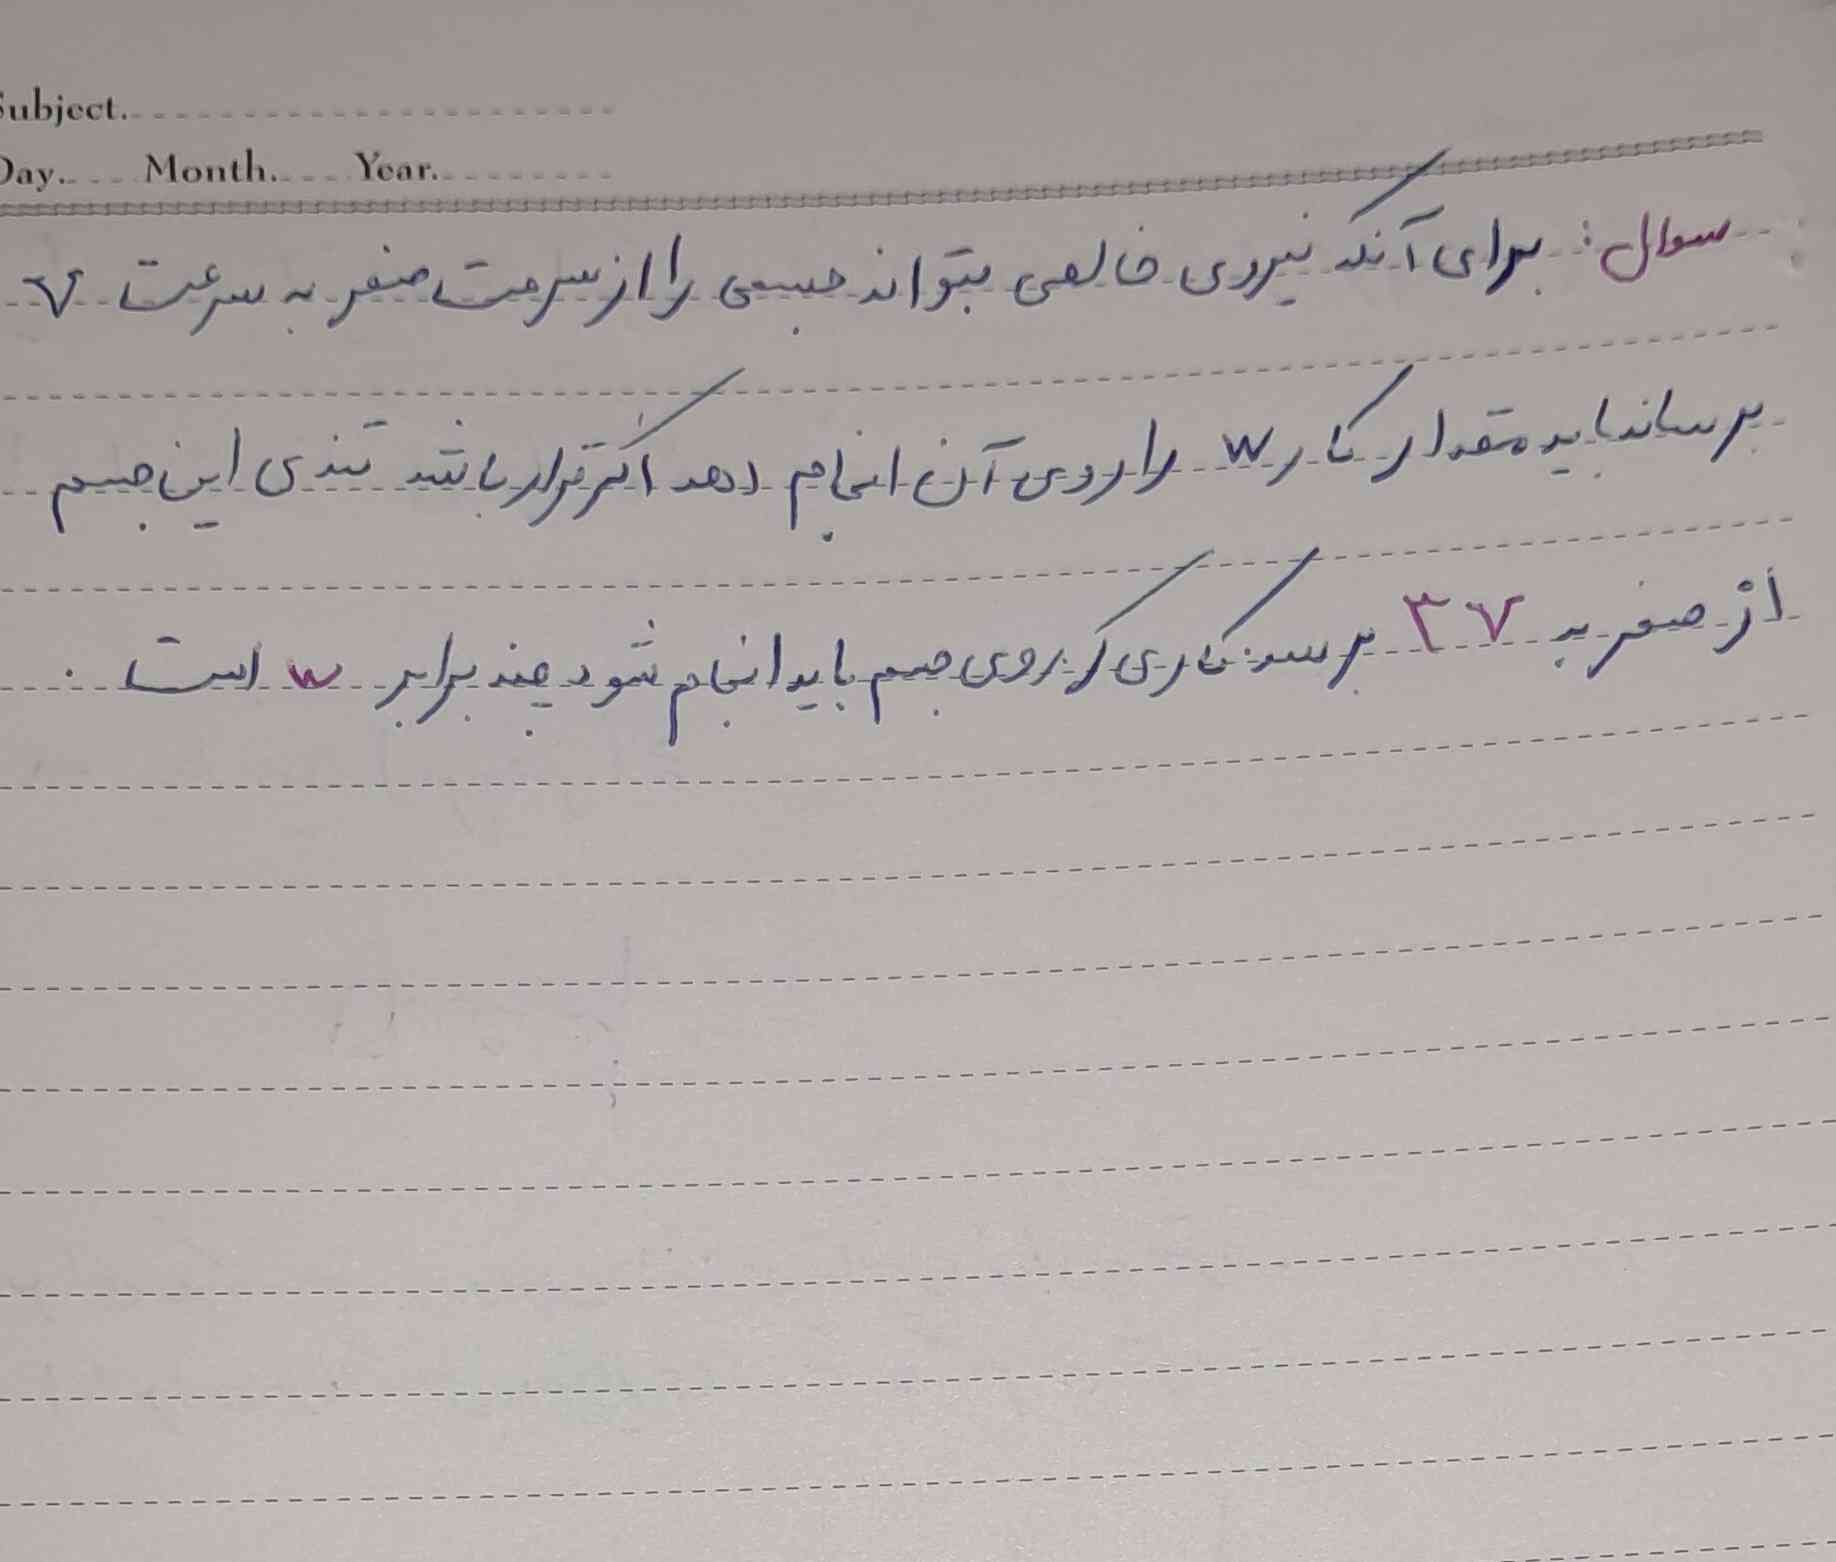 Subject.
Day. Month. Year.
سوال: برای آنکه نیروی خالصی بتواند جسمی را از سرعت صفر به سرعت v
برساند باید مقدار کار w را روی آن انجام دهد اگر قرار باشد تندی این جسم
از صفر به ۳v برسد کاری که روی جسم باید انجام شود چند برابر w است.